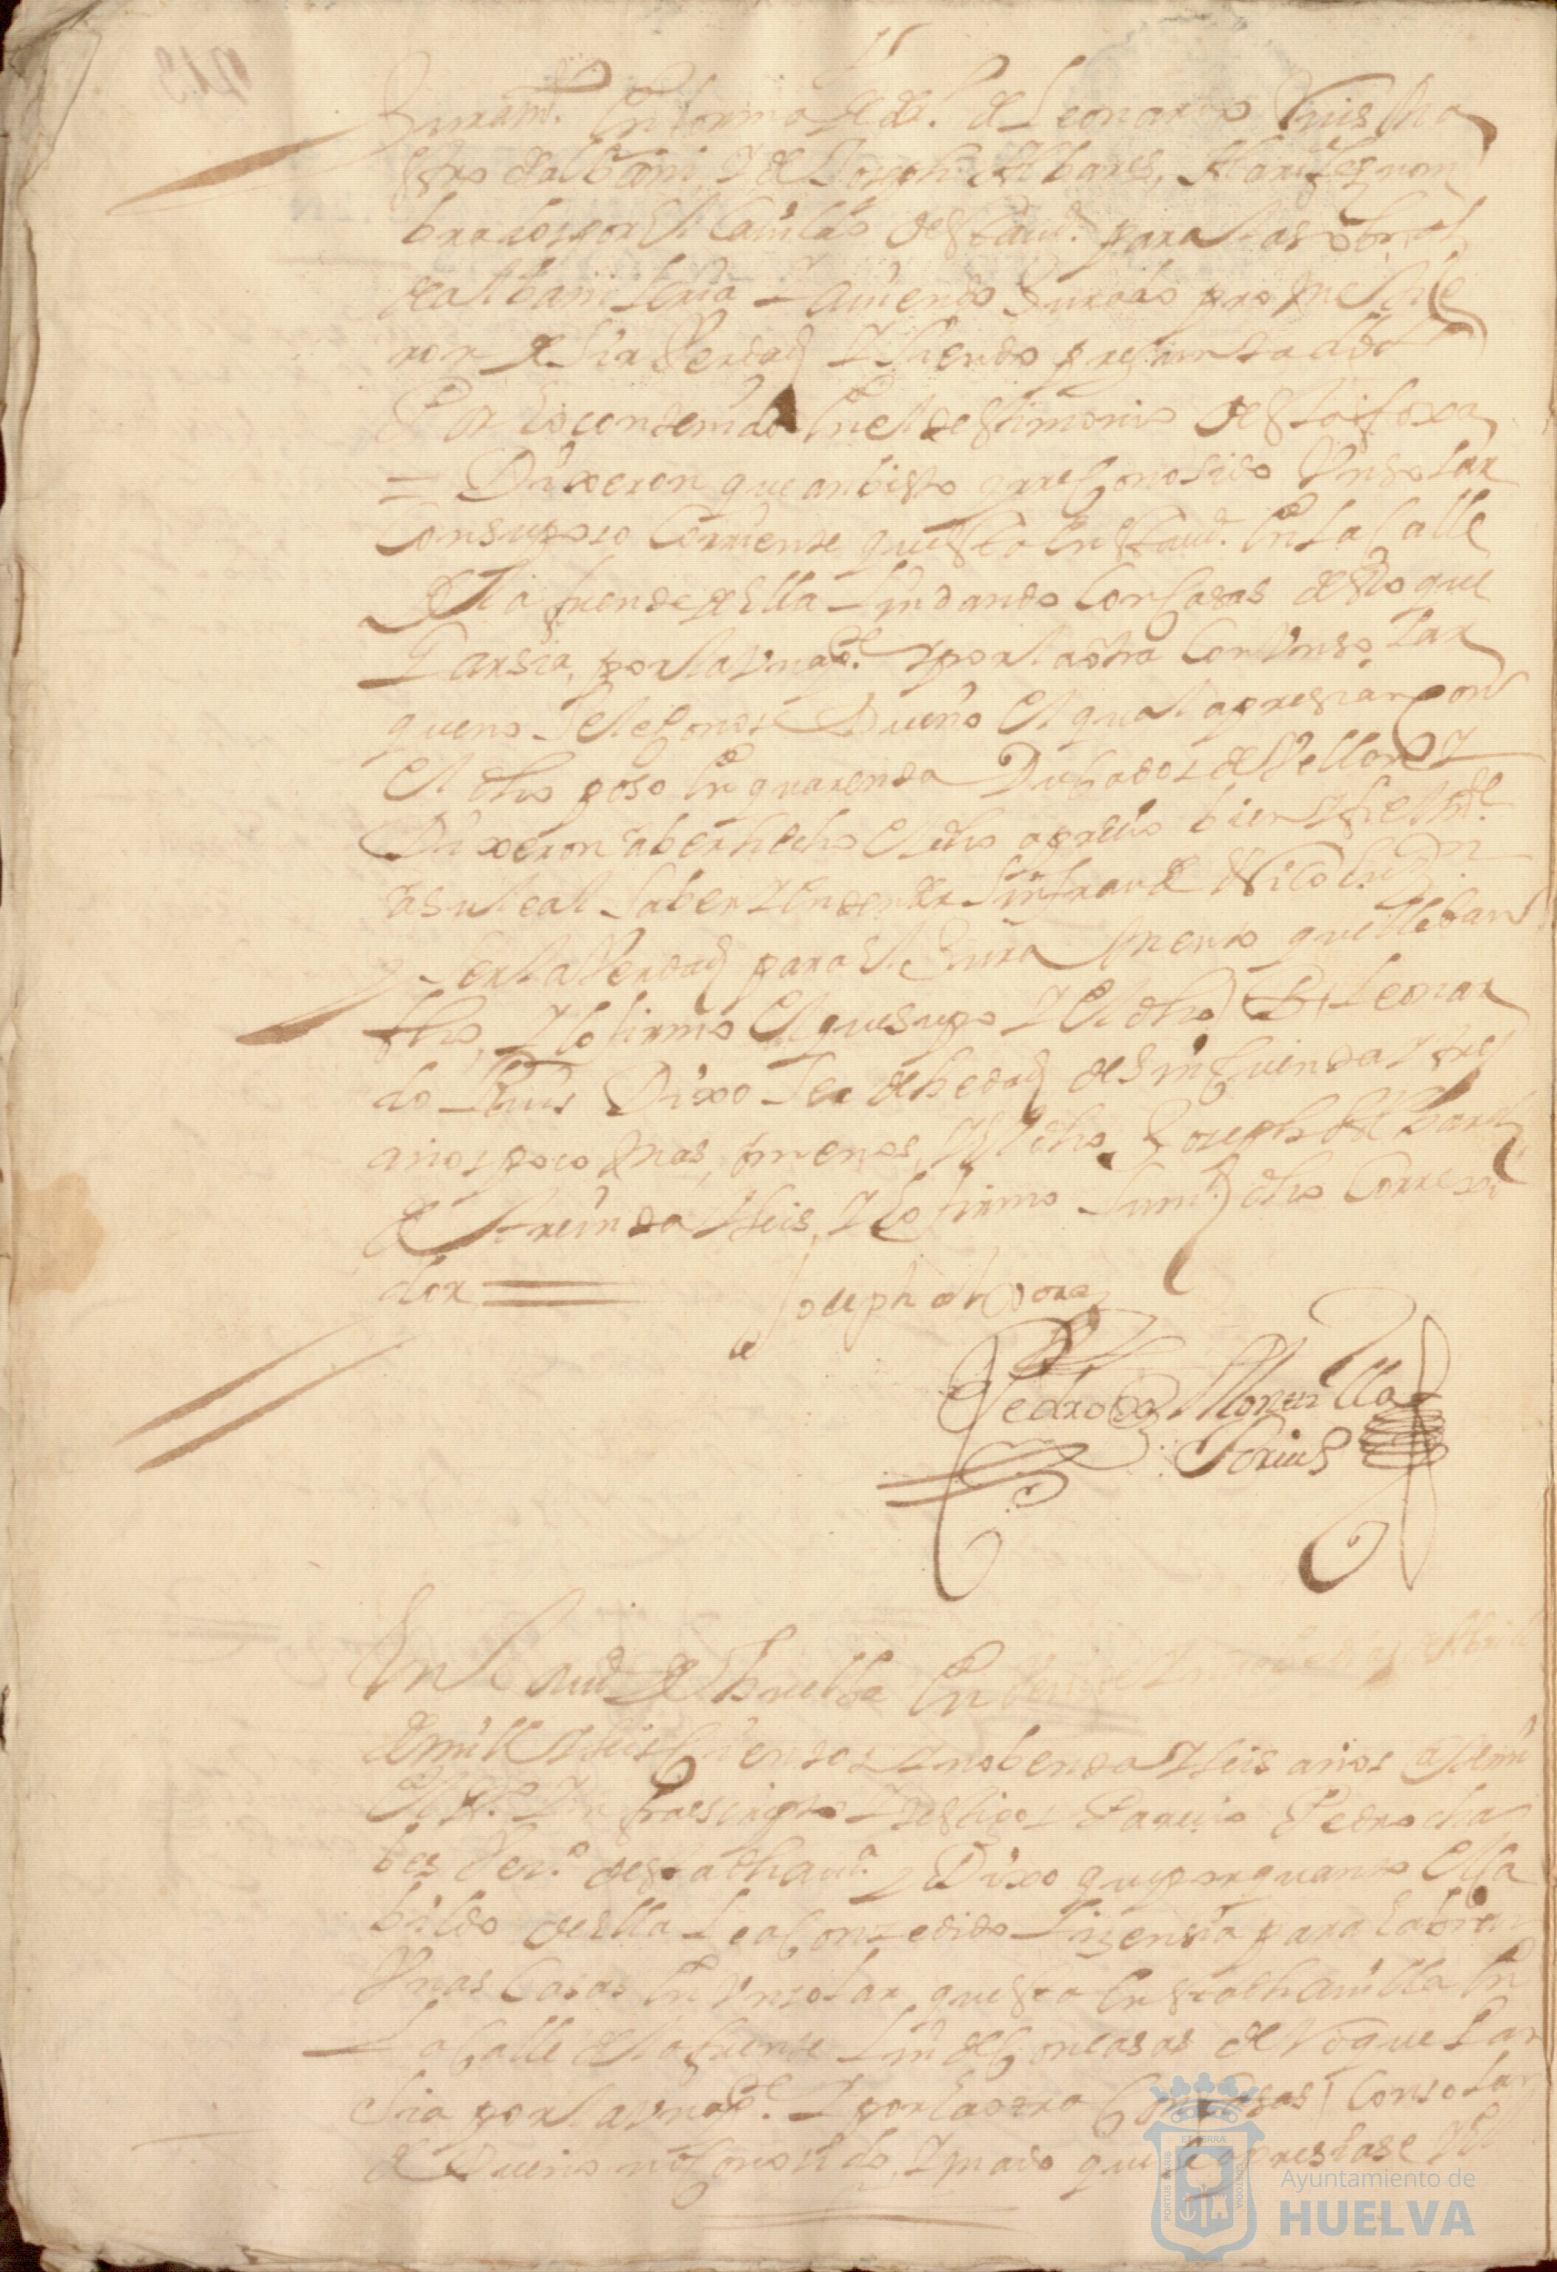 Juramto. En forma de dro. de Leonardo Ruis Ma
estro de albañi, y de Joseph Albares, Alarifes nom
brados por el Cavildo desta uia. para las obras
de albañileria = y auiendo Jurado prometie
ron desir Verdad y siendo preguntados
Por lo contenido en el testimonio desta foxa
= Dixeron que an bisto y reconosido Un solar
Con su poso Corriente que esta en esta uia. en la Calle
de la fuente de ella Lindando Con Casas de Roque
Garsia, por la una pte. y por la otra Con Un solar
que no se le Conose Dueño el qual apresiaron Con
el dho poso en quarenta Ducados de Vellon y
Dixeron aber hecho el dho apresio bien y fielmte.
a su leal saber y entender sin fraude
ser la Verdad para el Juramento que lleban
fho, y lo firmo el que supo y el dho Leonar
do Ruis Dixo ser de hedad de sinquenta y tres
años poco mas, o menos, y el dho Joseph Albares
de treinta y seis, y lo firmo su md dho Correxi
dor =
Joseph albares
Pedro de Montilla
En la uia de Huelba en
de mill y seis cientos y nobenta y seis años ante mi
el ssno. Ynfraescripto y testigos Parecio Pedro cha
bes Veco. desta dha uia. y Dixo que por quanto el Ca
bildo de ella le a Consedido Lizensia para labrar
Unas Casas en Un solar que esta en esta dha uilla en
la Calle de la fuente Linde Con casas de Roque Gar
sia por la una pte. y por la otra Con solar
de Dueño no Conosido, y mando que se apresiase
Ayuntamiento de
HUELVA